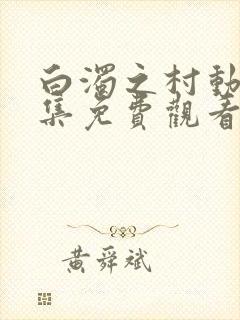 白濁之村動
集免費觀看
黃舜斌